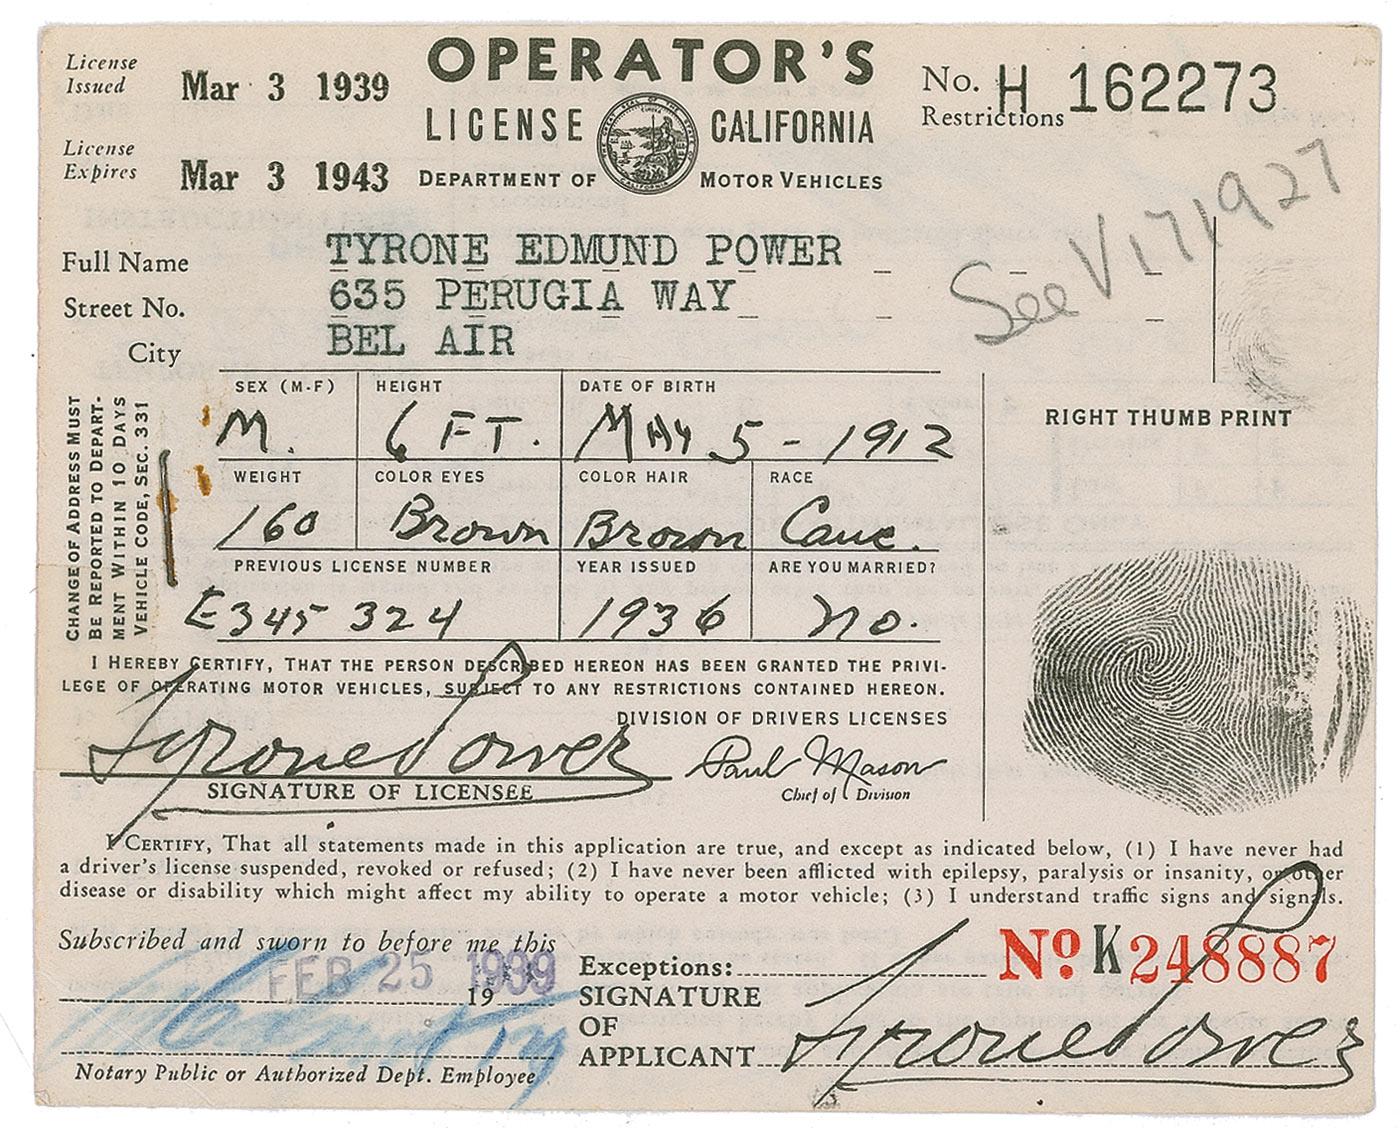 License Issued Mar 3 1939
OPERATOR'S
LICENSE CALIFORNIA
No. H 162273
Restrictions
License Expires Mar 3 1943
DEPARTMENT OF MOTOR VEHICLES
See V171927
Full Name TYRONE EDMUND POWER
Street No. 635 PERUGIA WAY
City BEL AIR
CHANGE OF ADDRESS MUST
BE REPORTED TO DEPART-
MENT WITHIN 10 DAYS
VEHICLE CODE, SEC. 331
SEX (M-F) HEIGHT DATE OF BIRTH
M. 6 FT. MAY 5 - 1912
WEIGHT COLOR EYES COLOR HAIR RACE
160 Brown Brown Cauc.
PREVIOUS LICENSE NUMBER YEAR ISSUED ARE YOU MARRIED?
E345 324 1936 no.
RIGHT THUMB PRINT
I HEREBY CERTIFY, THAT THE PERSON DESCRIBED HEREON HAS BEEN GRANTED THE PRIVI-
LEGE OF OPERATING MOTOR VEHICLES, SUBJECT TO ANY RESTRICTIONS CONTAINED HEREON.
DIVISION OF DRIVERS LICENSES
Tyrone Power Paul Mason
SIGNATURE OF LICENSEE Chief of Division
I CERTIFY, That all statements made in this application are true, and except as indicated below, (1) I have never had
a driver's license suspended, revoked or refused; (2) I have never been afflicted with epilepsy, paralysis or insanity, or other
disease or disability which might affect my ability to operate a motor vehicle; (3) I understand traffic signs and signals.
Subscribed and sworn to before me this
FEB 25 1939
19
Notary Public or Authorized Dept. Employee
Exceptions: No. K248887
SIGNATURE
OF
APPLICANT Tyrone Power